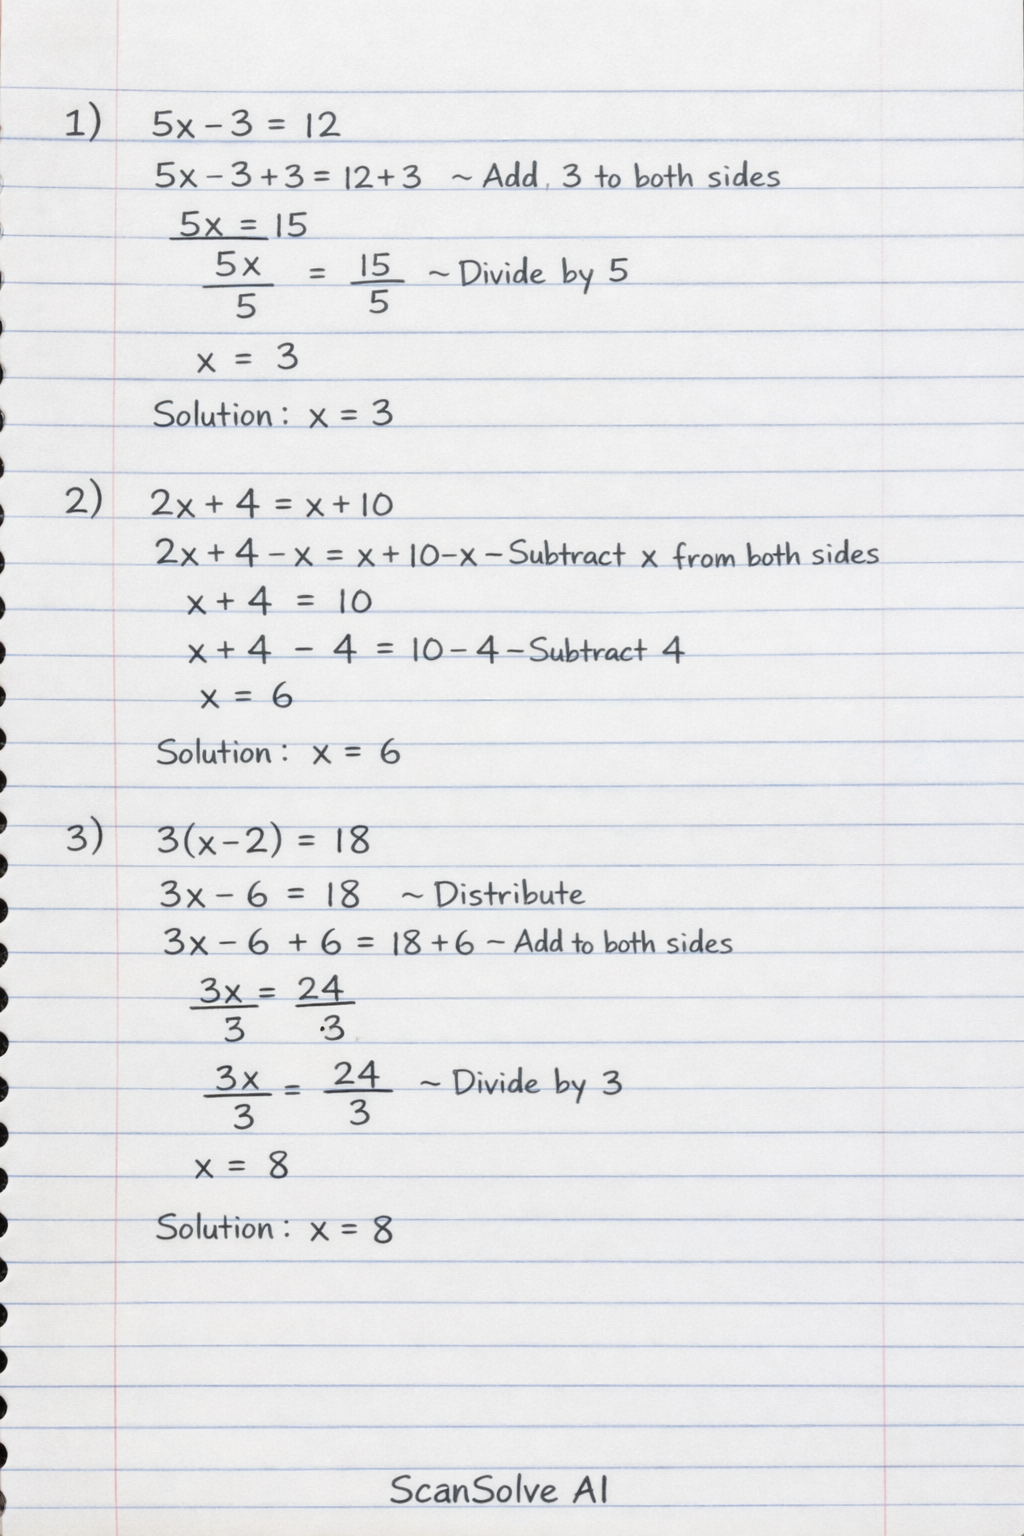 1) 5x - 3 = 12
5x - 3 + 3 = 12 + 3 ~ Add 3 to both sides
5x = 15
5x/5 = 15/5 ~ Divide by 5
x = 3
Solution: x = 3
2) 2x + 4 = x + 10
2x + 4 - x = x + 10 - x - Subtract x from both sides
x + 4 = 10
x + 4 - 4 = 10 - 4 - Subtract 4
x = 6
Solution: x = 6
3) 3(x - 2) = 18
3x - 6 = 18 ~ Distribute
3x - 6 + 6 = 18 + 6 ~ Add to both sides
3x/3 = 24/·3
3x/3 = 24/3 ~ Divide by 3
x = 8
Solution: x = 8
ScanSolve AI